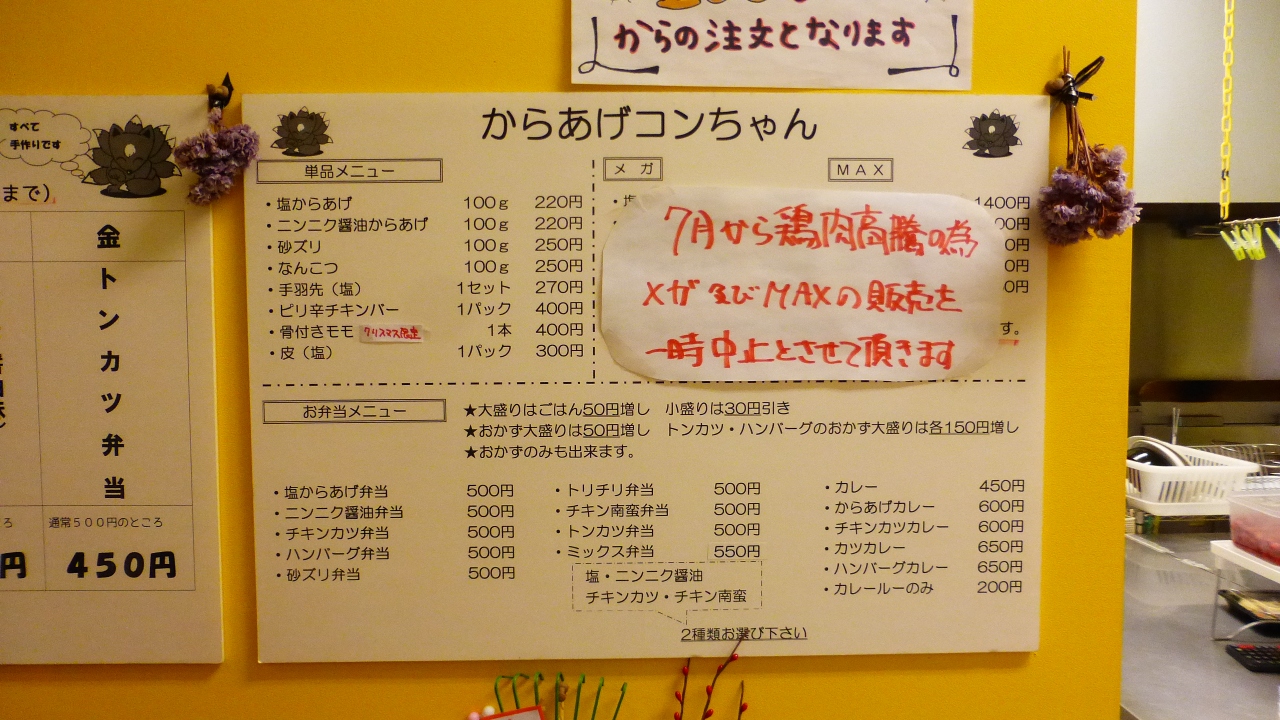 からの注文となります
すべて
手作りです
まで)
金
トンカツ弁当
通常500円のところ
450円
円
からあげコンちゃん
単品メニュー
・塩からあげ 100g 220円
・ニンニク醤油からあげ 100g 220円
・砂ズリ 100g 250円
・なんこつ 100g 250円
・手羽先(塩) 1セット 270円
・ピリ辛チキンバー 1パック 400円
・骨付きモモ クリスマス限定 1本 400円
・皮(塩) 1パック 300円
メガ MAX
1400円
00円
0円
0円
0円
す。
7月から鶏肉高騰の為
メガ及びMAXの販売を
一時中止とさせて頂きます
お弁当メニュー
★大盛りはごはん50円増し 小盛りは30円引き
★おかず大盛りは50円増し トンカツ・ハンバーグのおかず大盛りは各150円増し
★おかずのみも出来ます。
・塩からあげ弁当 500円
・ニンニク醤油弁当 500円
・チキンカツ弁当 500円
・ハンバーグ弁当 500円
・砂ズリ弁当 500円
・トリチリ弁当 500円
・チキン南蛮弁当 500円
・トンカツ弁当 500円
・ミックス弁当 550円
塩・ニンニク醤油
チキンカツ・チキン南蛮
2種類お選び下さい
・カレー 450円
・からあげカレー 600円
・チキンカツカレー 600円
・カツカレー 650円
・ハンバーグカレー 650円
・カレールーのみ 200円